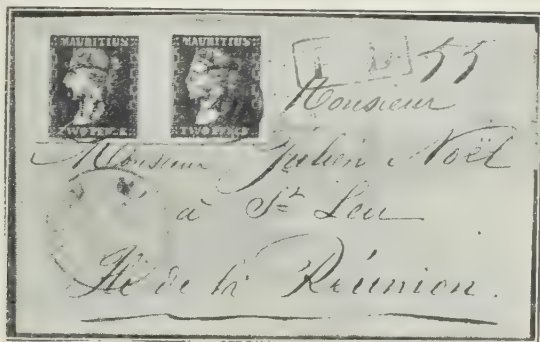 MAURITIUS
TWO PENCE
MAURITIUS
TWO PENCE
55
Monsieur
Monsieur Julien Noël
à St Leu
Ile de la Réunion.